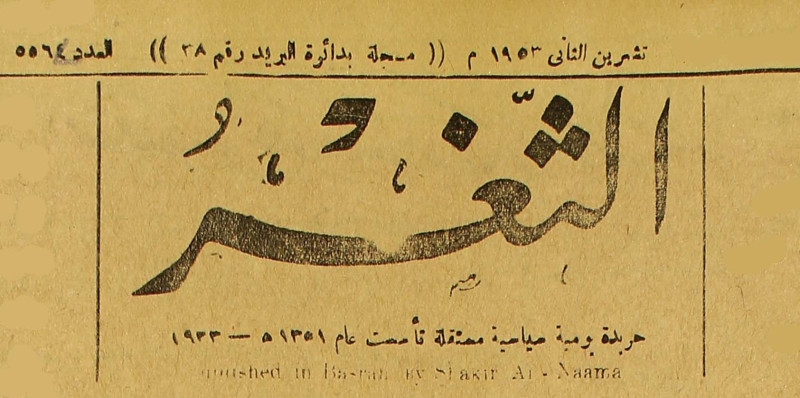 تشرين الثاني ١٩٥٣ م (( مسجلة بدائرة البريد رقم ٢٨ )) العدد ٥٥٦٤
الثَّغْرُ
جريدة يومية سياسية مستقلة تأسست عام ١٣٥١ ه — ١٩٣٣
Published in Basrah by Shakir Al - Naama